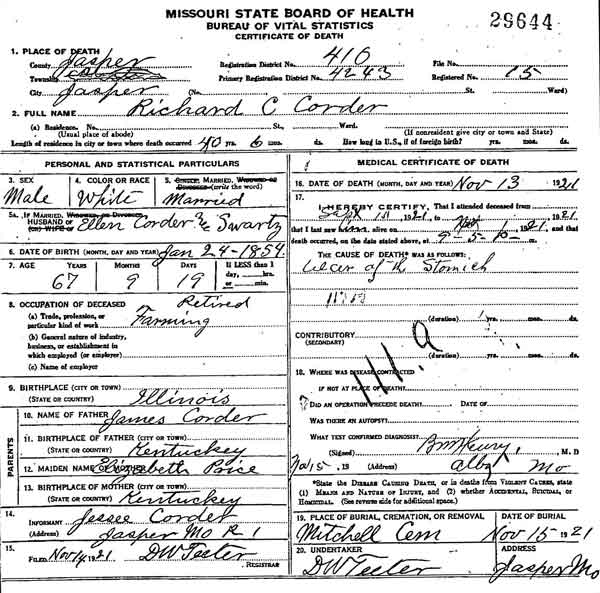 MISSOURI STATE BOARD OF HEALTH
BUREAU OF VITAL STATISTICS
CERTIFICATE OF DEATH
29644
1. PLACE OF DEATH
County Jasper Registration District No. 410 File No.
Township Primary Registration District No. 4243 Registered No. 15
City Jasper (No. St. Ward)
2. FULL NAME Richard C Corder
(a) Residence. No. St., Ward.
(Usual place of abode) (If nonresident give city or town and State)
Length of residence in city or town where death occurred 40 yrs. 6 mos. ds. How long in U.S., if of foreign birth? yrs. mos. ds.
PERSONAL AND STATISTICAL PARTICULARS
3. SEX
Male
4. COLOR OR RACE
White
5. SINGLE, MARRIED, WIDOWED OR
DIVORCED (write the word)
Married
5a. IF MARRIED, WIDOWED, OR DIVORCED
HUSBAND OF
(OR) WIFE OF Ellen Corder Swartz
6. DATE OF BIRTH (MONTH, DAY AND YEAR) Jan 24-1854
7. AGE YEARS MONTHS DAYS If LESS than 1
67 9 19 day, hrs.
or min.
8. OCCUPATION OF DECEASED Retired
(a) Trade, profession, or
particular kind of work Farming
(b) General nature of industry,
business, or establishment in
which employed (or employer)
(c) Name of employer
9. BIRTHPLACE (CITY OR TOWN)
(STATE OR COUNTRY) Illinois
PARENTS
10. NAME OF FATHER James Corder
11. BIRTHPLACE OF FATHER (CITY OR TOWN)
(STATE OR COUNTRY) Kentuckey
12. MAIDEN NAME OF MOTHER Elizabeth Price
13. BIRTHPLACE OF MOTHER (CITY OR TOWN)
(STATE OR COUNTRY) Kentuckey
14.
INFORMANT Jessee Corder
(Address) Jasper Mo R 1
15.
FILED Nov 14, 1921 DW Teeter
REGISTRAR
MEDICAL CERTIFICATE OF DEATH
16. DATE OF DEATH (MONTH, DAY AND YEAR) Nov 13 1921
17.
I HEREBY CERTIFY, That I attended deceased from
Sept 1st, 1921, to , 1921
that I last saw alive on 1, 1921, and that
death occurred, on the date stated above, at m.
THE CAUSE OF DEATH* WAS AS FOLLOWS:
Ulcer of the Stomich
(duration) 1 yrs. mos. ds.
CONTRIBUTORY
(SECONDARY)
(duration) yrs. mos. ds.
111.a
18. WHERE WAS DISEASE CONTRACTED
IF NOT AT PLACE OF DEATH?
DID AN OPERATION PRECEDE DEATH? DATE OF
WAS THERE AN AUTOPSY?
WHAT TEST CONFIRMED DIAGNOSIS?
(Signed) , M.D
Nov 15, 19 (Address) Alba Mo
*State the DISEASE CAUSING DEATH, or in deaths from VIOLENT CAUSES, state
(1) MEANS AND NATURE OF INJURY, and (2) whether ACCIDENTAL, SUICIDAL, or
HOMICIDAL. (See reverse side for additional space).
19. PLACE OF BURIAL, CREMATION, OR REMOVAL DATE OF BURIAL
Mitchell Cem Nov 15 1921
20. UNDERTAKER ADDRESS
DW Teeter Jasper Mo